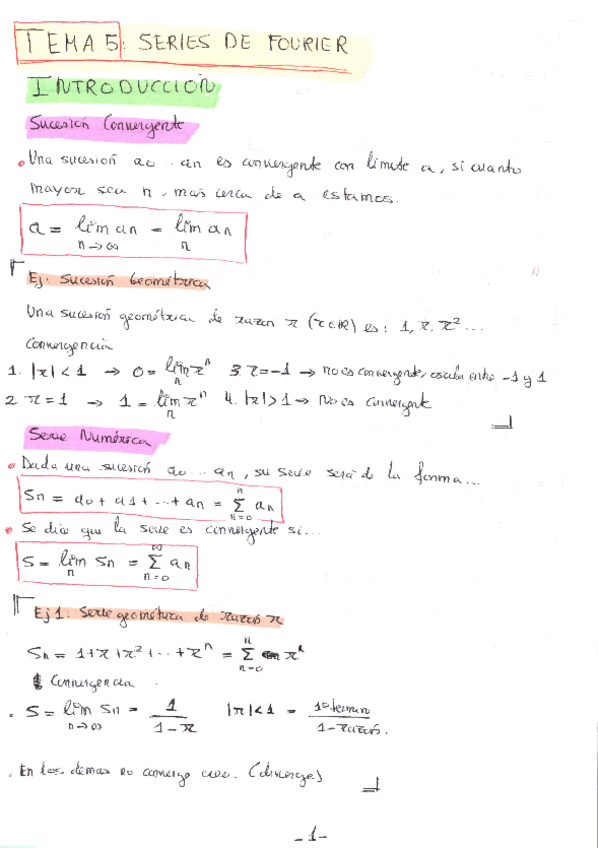 TEMA 5: SERIES DE FOURIER
INTRODUCCIÓN
Sucesión Convergente
• Una sucesión a0 ... an es convergente con límite a, si cuanto
mayor sea n, mas cerca de a estamos.
a = lim an = lim an
n→∞ n
Ej: Sucesión Geométrica
Una sucesión geométrica de razón r (r∈ℝ) es: 1, r, r² ...
Convergencia
1. |r| < 1 → 0 = lim rⁿ 3 r=-1 → no es convergente, oscila entre -1 y 1
n
2 r = 1 → 1 = lim rⁿ 4. |r| > 1 → No es convergente
n
Serie Numérica
• Dada una sucesión a0 ... an, su serie será de la forma...
Sn = a0 + a1 + ... + an = Σ an
n
n=0
• Se dice que la serie es convergente si...
S = lim Sn = Σ an
n
∞
n=0
Ej 1: Serie geométrica de razón r
Sn = 1+r+r²+...+rⁿ = Σ rⁿ
n
n=0
Convergencia
. S = lim Sn = 1 / 1-r |r|<1 = 1º termino / 1-razón.
n→∞
. En los demas no converge (diverge)
-1-